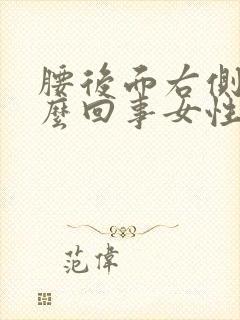 腰後而右側
麼回事女性
范偉